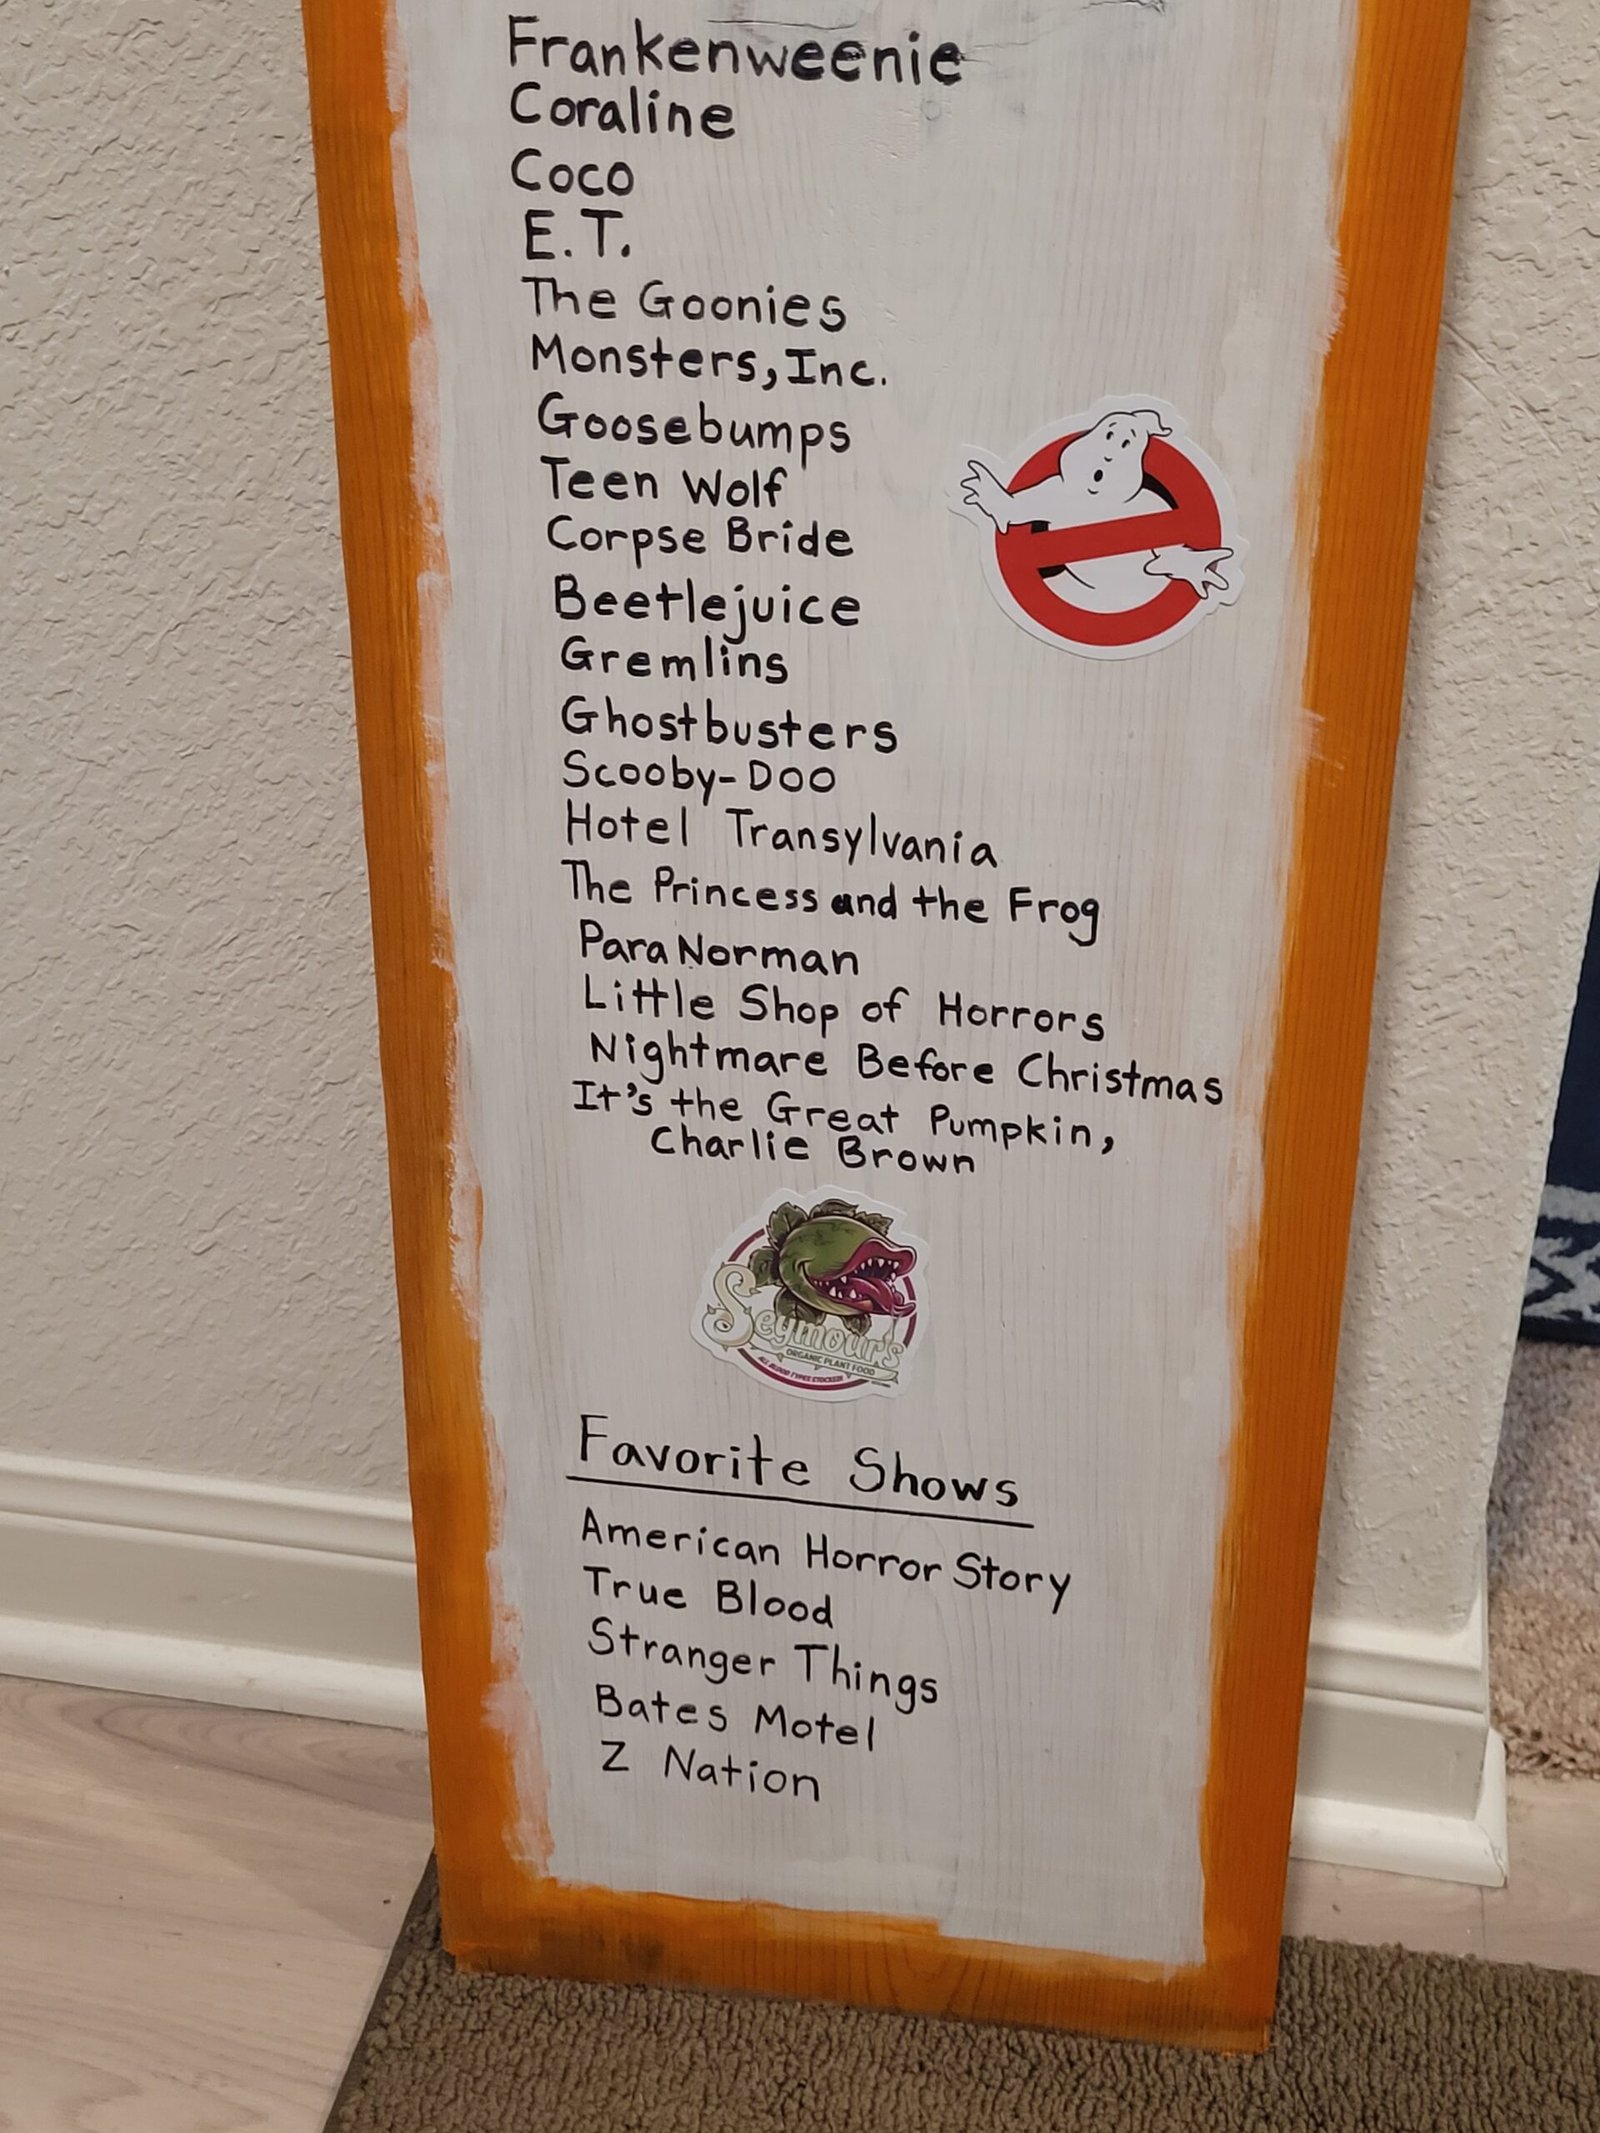 Frankenweenie
Coraline
Coco
E.T.
The Goonies
Monsters, Inc.
Goosebumps
Teen Wolf
Corpse Bride
Beetlejuice
Gremlins
Ghostbusters
Scooby-Doo
Hotel Transylvania
The Princess and the Frog
ParaNorman
Little Shop of Horrors
Nightmare Before Christmas
It's the Great Pumpkin,
Charlie Brown
Seymour's
ORGANIC PLANT FOOD
ALL BLOOD TYPES STOCKED!
Favorite Shows
American Horror Story
True Blood
Stranger Things
Bates Motel
Z Nation